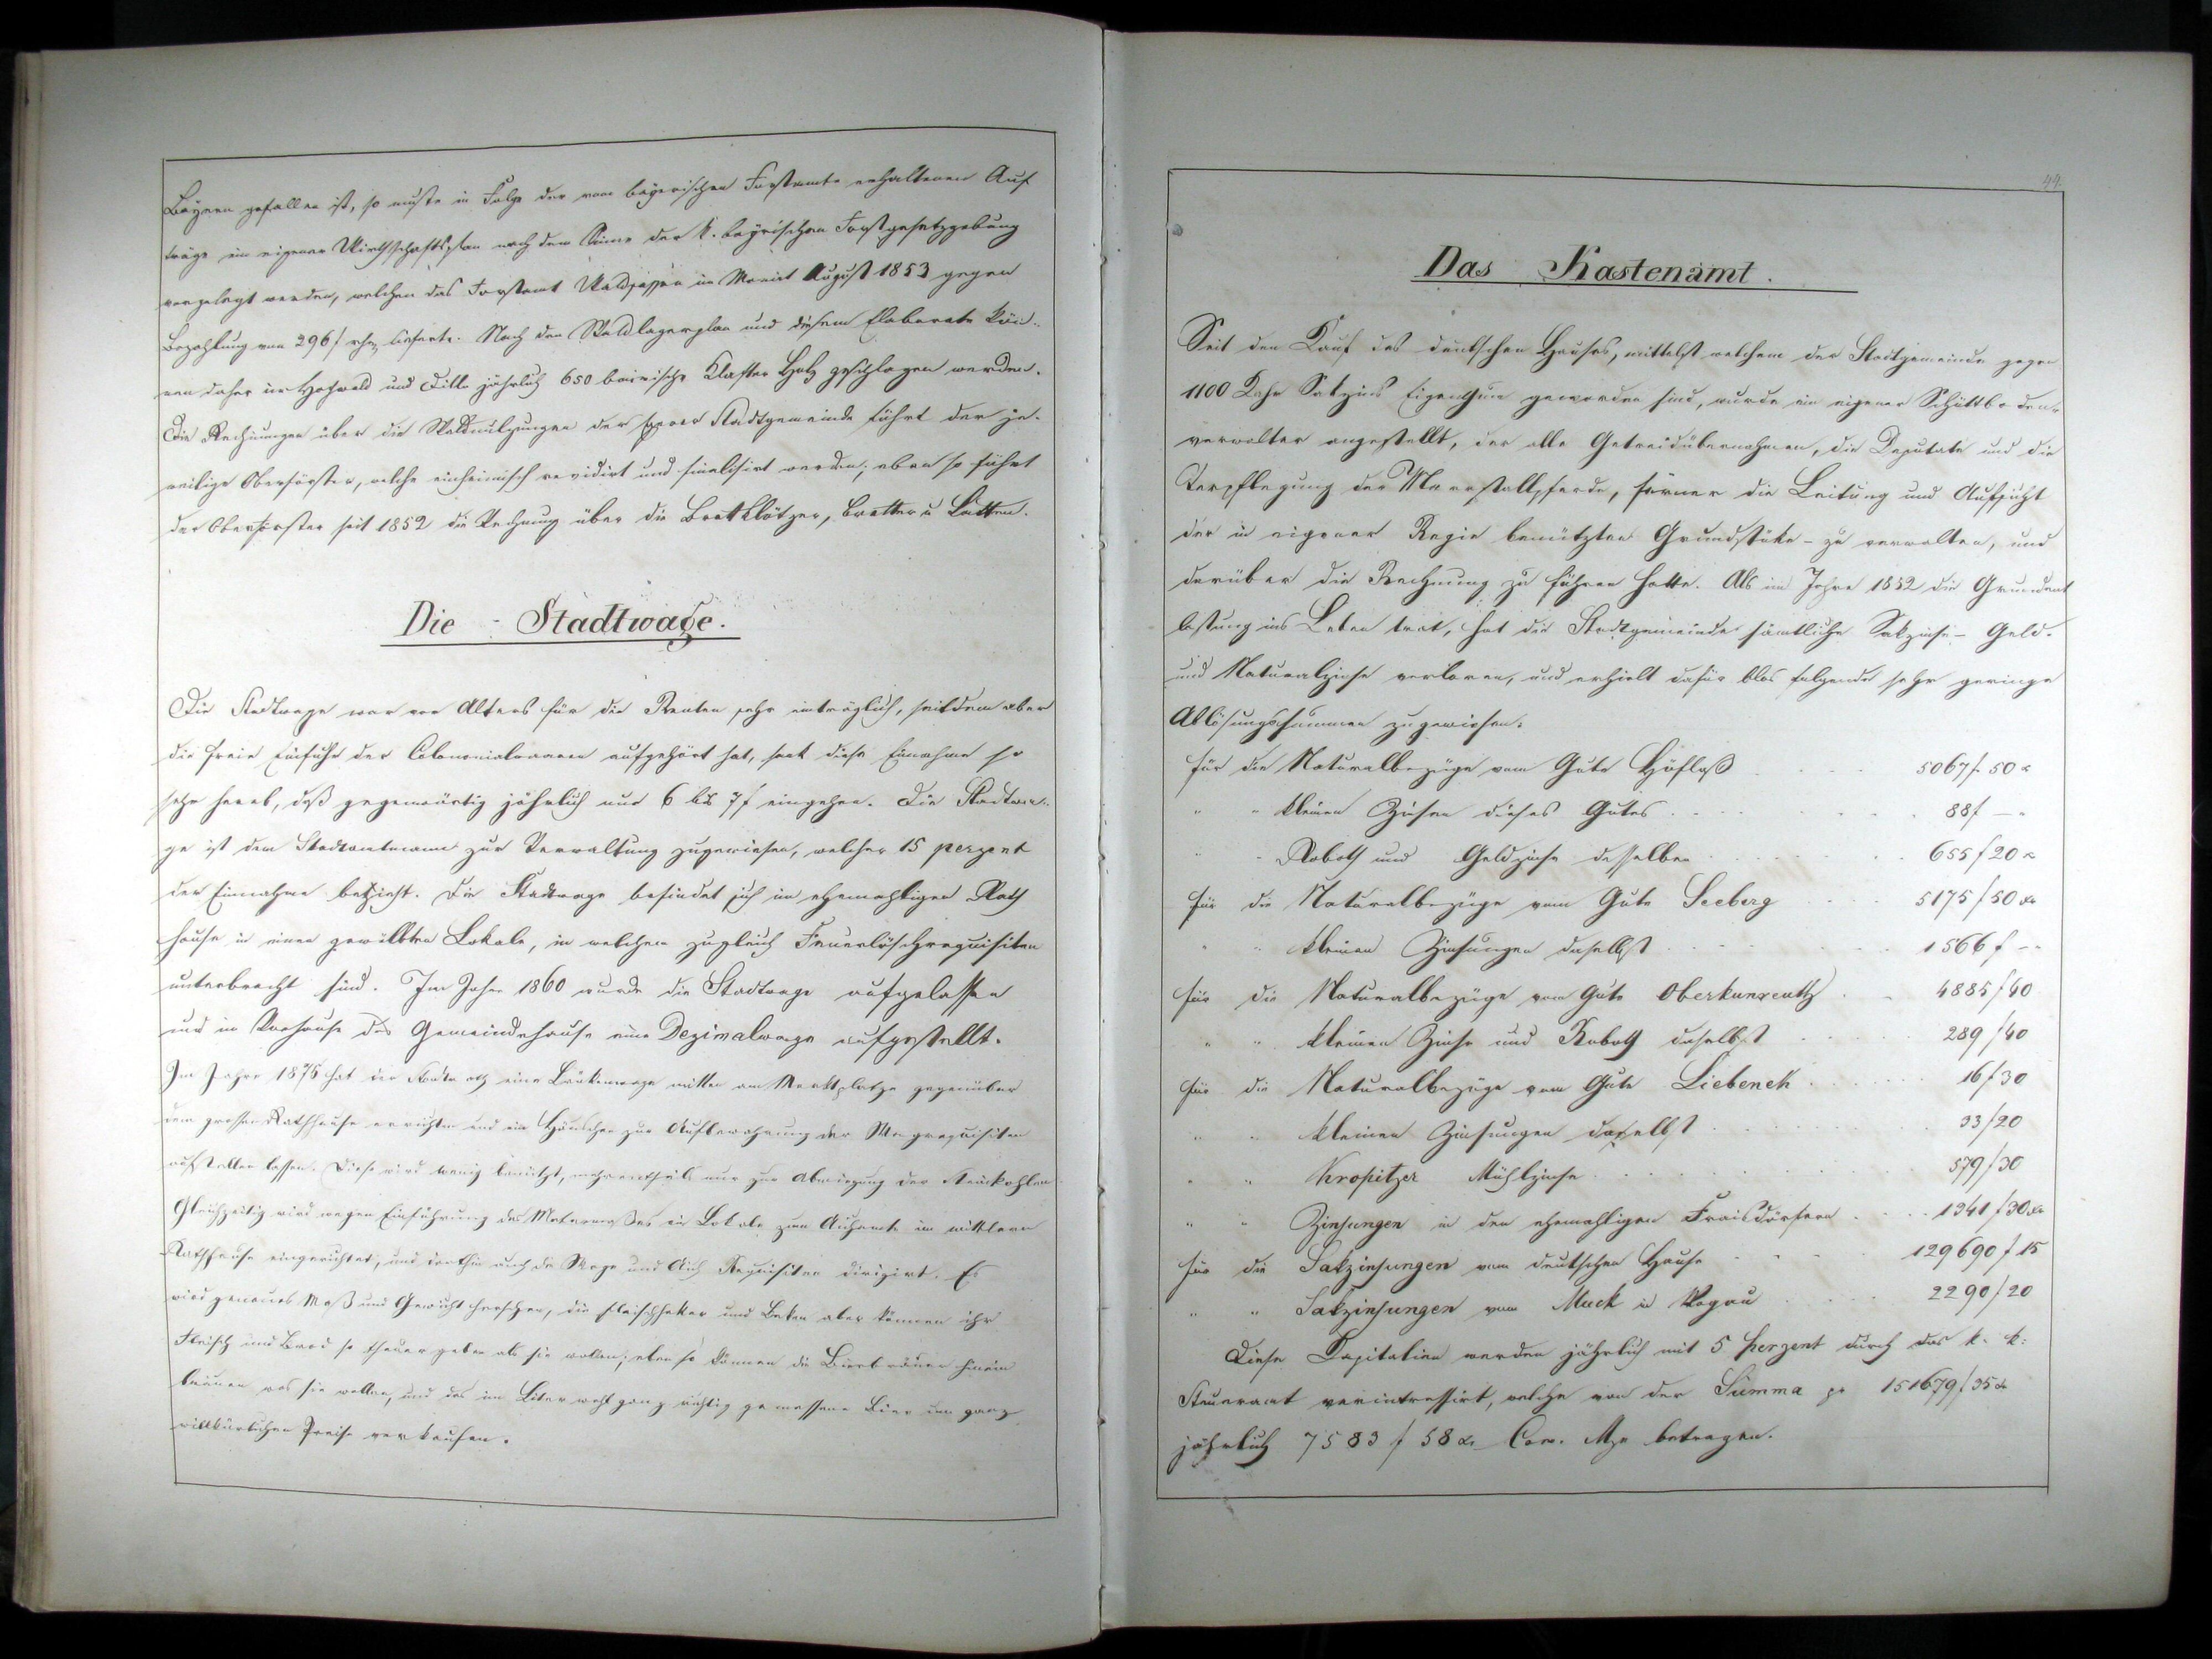 Bayern gefallen ist, so mußte in Folge der vom bayerischen Forstamte erhaltenen Auf
träge ein eigener Wirthschaftsplan nach dem Sinne der k. bayrischen Forstgesetzgebung
vorgelegt werden, welchen das Forstamt Waldsassen im Monat August 1853 gegen
Bezahlung von 296 f rhn. lieferte. Nach den Waldlagerplan und diesem Elaborate kön-
nen daher im Hochwald und Dille jährlich 650 bairische Klafter Holz geschlagen werden.
Die Rechnungen über die Waldnutzungen der Stadtgemeinde führt der je-
weilige Oberförster, welche einheimisch revidirt und finalisirt werden; eben so führt
der Oberförster seit 1852 die Rechnung über die Brettklötzer, Bretter u Latten.
Die Stadtwage.
Die Stadtwage war vor Alters für die Renten sehr einträglich, seitdem aber
die freie Einfuhr der Colononialwaaren aufgehört hat, sank diese Einnahme so
sehr herab, daß gegenwärtig jährlich nur 6 bis 7 f eingehen. Die Stadtwa-
ge ist dem Stadtamtmann zur Verwaltung zugewiesen, welcher 15 perzent
der Einnahme bezieht. Die Stadtwage befindet sich im ehemahligen Rath
hause in einen gewölbten Lokale, in welchem zugleich Feuerlöschrequisiten
unterbracht sind. Im Jahre 1860 wurde die Stadtwage aufgelassen
und im Vorhause des Gemeindehause eine Dezimalwage aufgestellt.
Im Jahre 1875 hat der Stadtrath eine Brükenwage mitten am Marktplatze gegenüber
dem grossen Rathhause errichten und ein Häuschen zur Aufbewahrung der Wagrequisiten
aufstellen lassen. Diese wird wenig benützt, mehrentheils nur zur Abwiegung der Steinkohlen
Gleichzeitig wird wegen Einführung des Metermaßes ein Lokale zum Aichamte im mittlern
Rathhause eingerichtet, und dorthin auch die Wage und Aich Requisiten dirigirt. Es
wird genaues Maß und Gewicht herschen, die Fleischhaker und Beken aber können ihr
Fleisch und Brod so theuer geben als sie wollen; eben so können die Bierbräuer hinein
bräuen was sie wollen, und das im Liter wohl ganz richtig gemessene Bier um ganz
willkürlichen Preise verkaufen.
44.
Das Kastenamt.
Seit den Kauf des deutschen Hauses, mittelst welchem der Stadtgemeinde gegen
1100 Kahr Sakzins Eigenthum geworden sind, wurde ein eigener Schüttboden-
verwalter angestellt, der alle Getreidübernahmen, die Deputate und die
Verpflegung der Marstallpferde, ferner die Leitung und Aufsicht
der in eigener Regie benützten Grundstüke - zu verwalten, und
darüber die Rechnung zu führen hatte. Als im Jahre 1852 die Grundent
lastung ins Leben trat, hat die Stadtgemeinde sämtliche Sakzinse - Geld-
und Naturalzinse verloren, und erhielt dafür blos folgende sehr geringe
Ablösungssummen zugewiesen:
für die Naturalbezüge vom Gute Höflaß 5067 f. 50 x
" " kleinen Zinsen dieses Gutes 88 f – "
" " Roboth und Geldzinse desselben 655 f 20 x
für die Naturalbezüge vom Gute Seeberg 5175 f 50 xr
" " kleinen Zinsungen daselbst 1566 f –
für die Naturalbezüge vom Gute Oberkunreuth 4885 f 40
" " kleinen Zinse und Roboth daselbst 289 f 40
für die Naturalbezüge vom Gute Liebenek 16 f 30
" " kleinen Zinsungen daselbst 33 f 20
" " Kropitzer Mühlzinse 579 f 30
" " Zinsungen in den ehemahligen Fraisdörfern 1341 f 30 xr
für die Sakzinsungen vom deutschen Hause 129690 f 15
" " Sakzinsungen vom Muck in Rogau 2290 f 20
Diese Kapitalien werden jährlich mit 5 Perzent durch das k. k.
Steueramt verintressirt, welche von der Summa pr 151679 f 35 x
jährlich 7583 f 58 xr Con. Mze betragen.